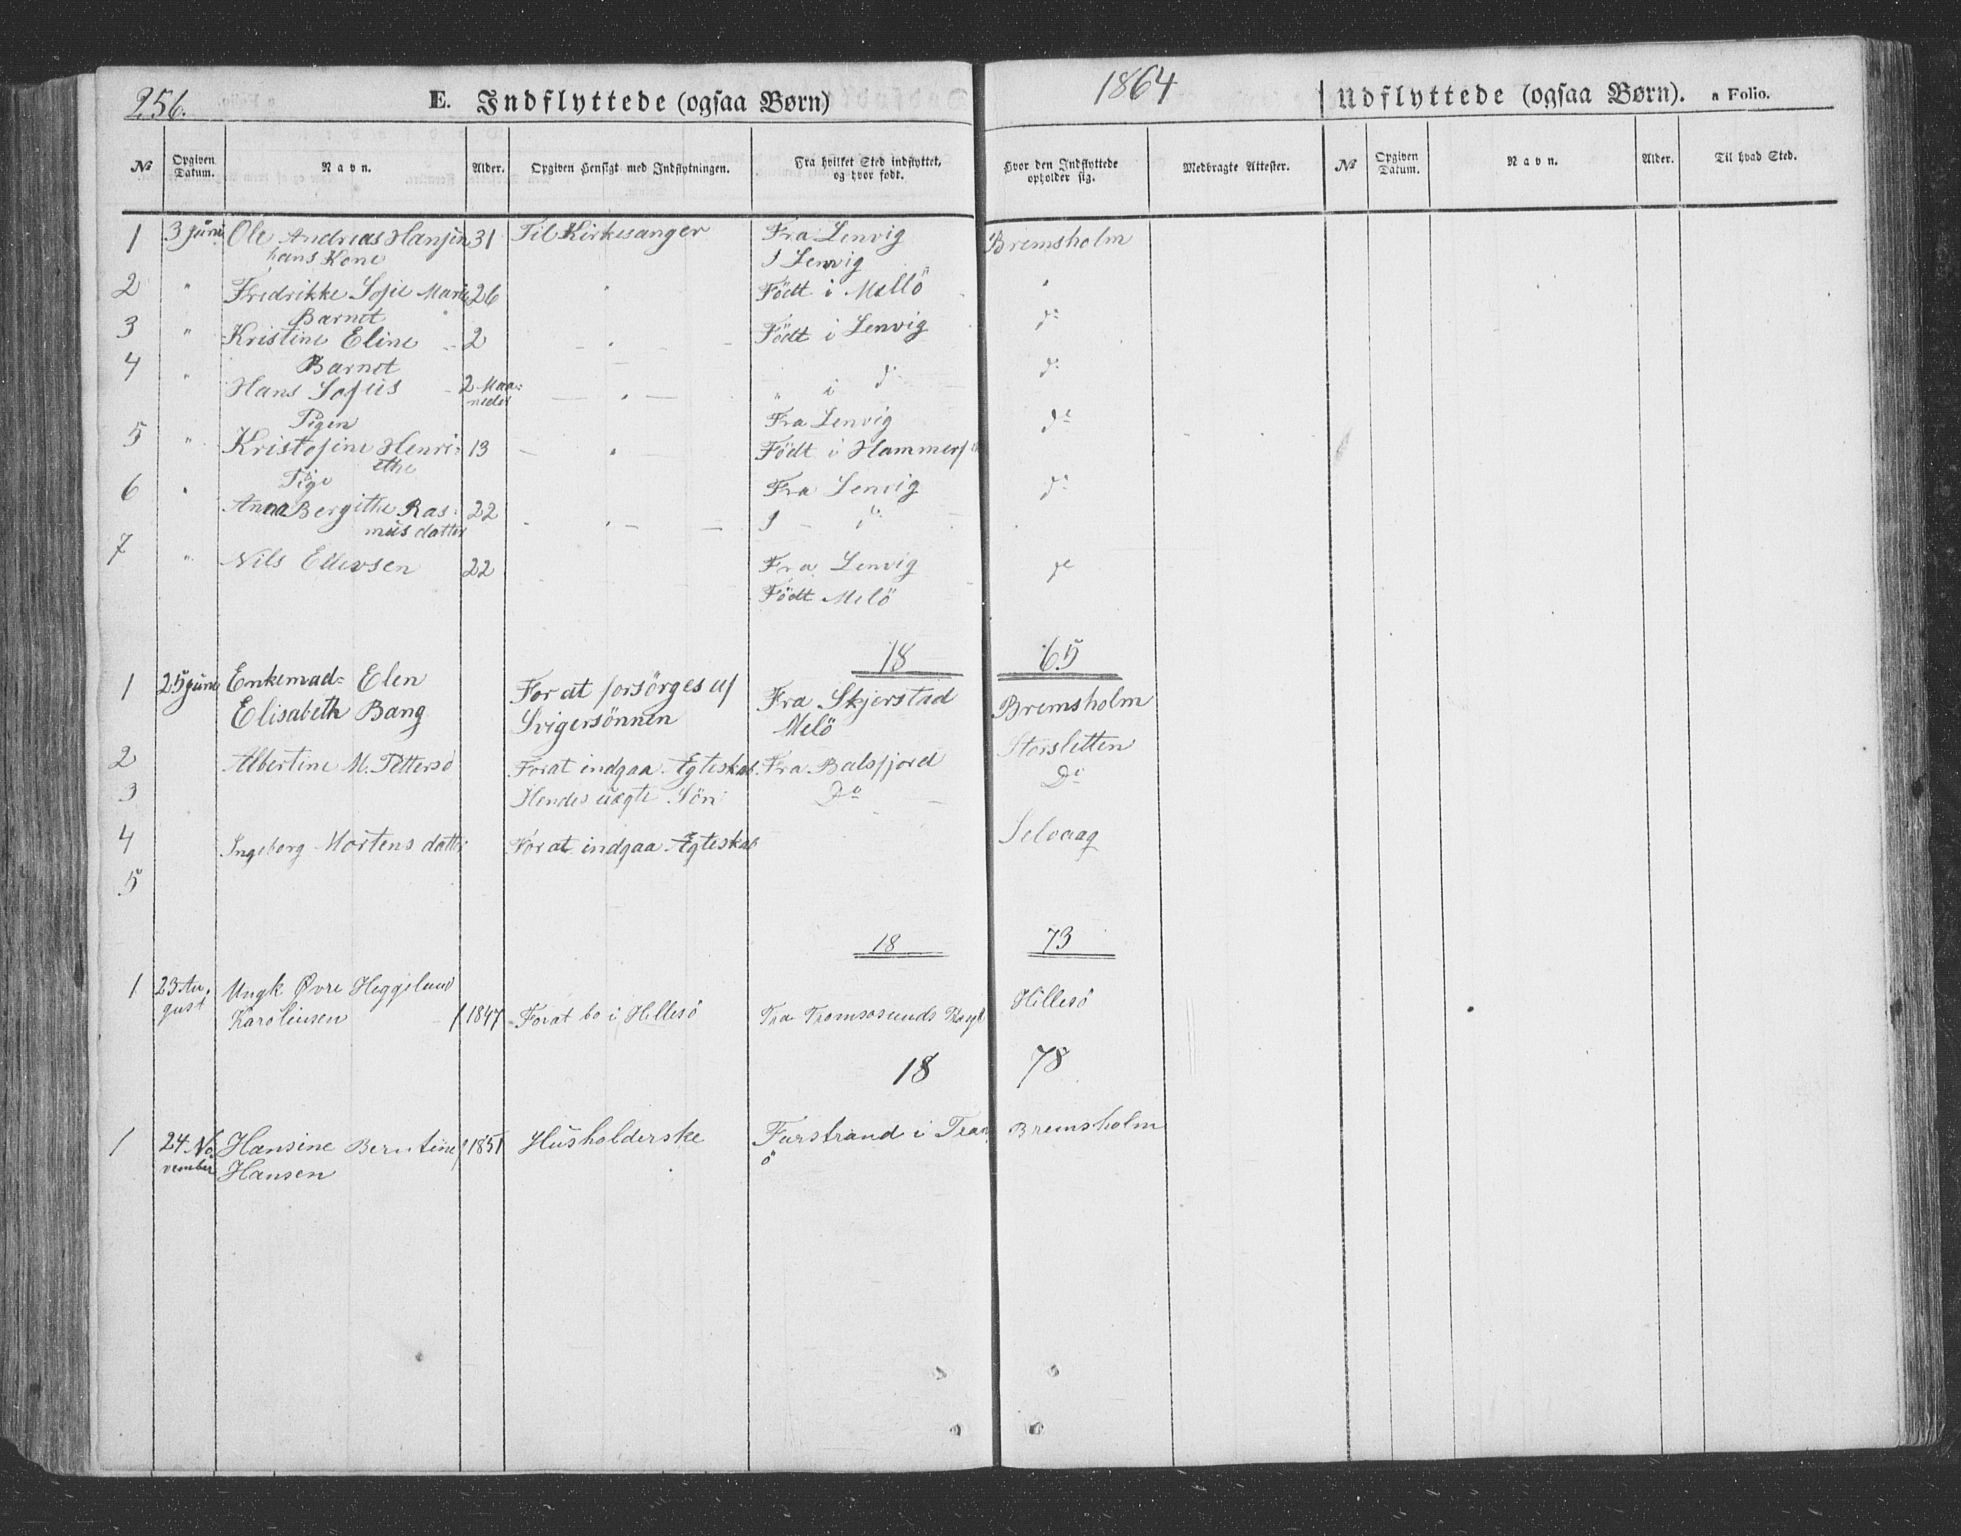 256.
E. Indflyttede (ogsaa Børn)
1864
Udflyttede (ogsaa Børn). a Folio.
No Opgiven Datum. Navn. Alder. Opgiven Hensigt med Indflytningen. Fra hvilket Sted indflyttet, og hvor født. Hvor den Indflyttede opholder sig. Medbragte Attester. No Opgiven Datum. Navn. Alder. Til hvad Sted.
1 3 juni Ole Andreas Hansen 31 Til Kirkesanger Fra Lenvig Bremsholm
hans Kone I Lenvig
2 " Fredrikke Sofie Marie 26 " Födt i Mellö "
Barnet
3 " Kristine Eline 2 " Födt i Lenvig do
Barnet
4 " Hans Sofus 2 Maa= " i do do
neder
Pigen Fra Lenvig
5 " Kristofine Henri= 13 " Födt i Hammerf do
ethe
Pige
6 " Anna Bergithe Ras= 22 " Fra Lenvig do
musdatter I
7 " Nils Ellevsen 22 Fra Lenvig do
Födt Melö
18 65
1 25 juni Enkemad= Elen For at forsörges af Fra Skjerstad Bremsholm
Elisabeth Bang Svigersönnen Melö
2 Albertine M. Petterso Forat indgaa Ægteskab Fra Balsfjord Storsletten
3 Hendes uægte Sön Do Do
4 Ingeborg Mortens datter Forat indgaa Ægteskab Selvaag
5
18 73
1 23 Au= Ungk Øvre Heggelund Hillesö
gust Karoliusen f 1847 Forat bo i Hillesö Fra Tromsosunds
18 78
1 24 No= Hansine Berntine f 1851 Husholderske i Tran Bremsholm
vember Hansen ö